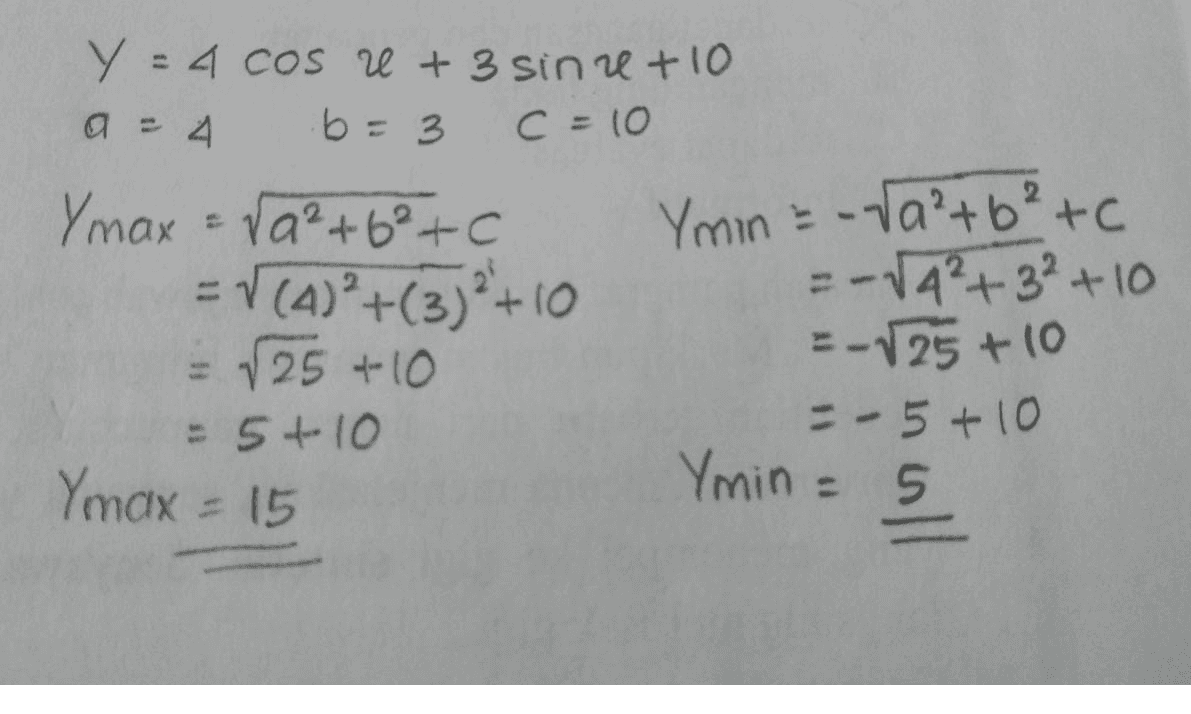 Y = 4 cos x + 3 sin x + 10
a = 4 b = 3 c = 10
Ymax = √a²+b² + c
= √(4)²+(3)² + 10
= √25 + 10
= 5 + 10
Ymax = 15
Ymin = -√a²+b² + c
= -√4²+3² + 10
= -√25 + 10
= -5 + 10
Ymin = 5